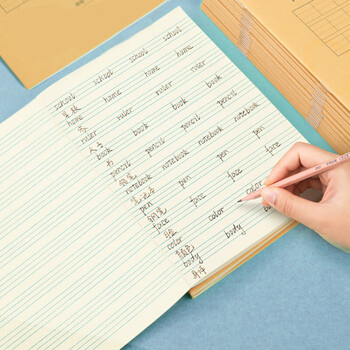 school school school school
学校
home home home home
家
ruler ruler ruler ruler
book book book book
书
pencil pencil pencil pencil
铅笔
notebook notebook notebook notebook
笔记本
pen pen pen pen
钢笔
face face face face
脸
color color color
颜色
body body
身体